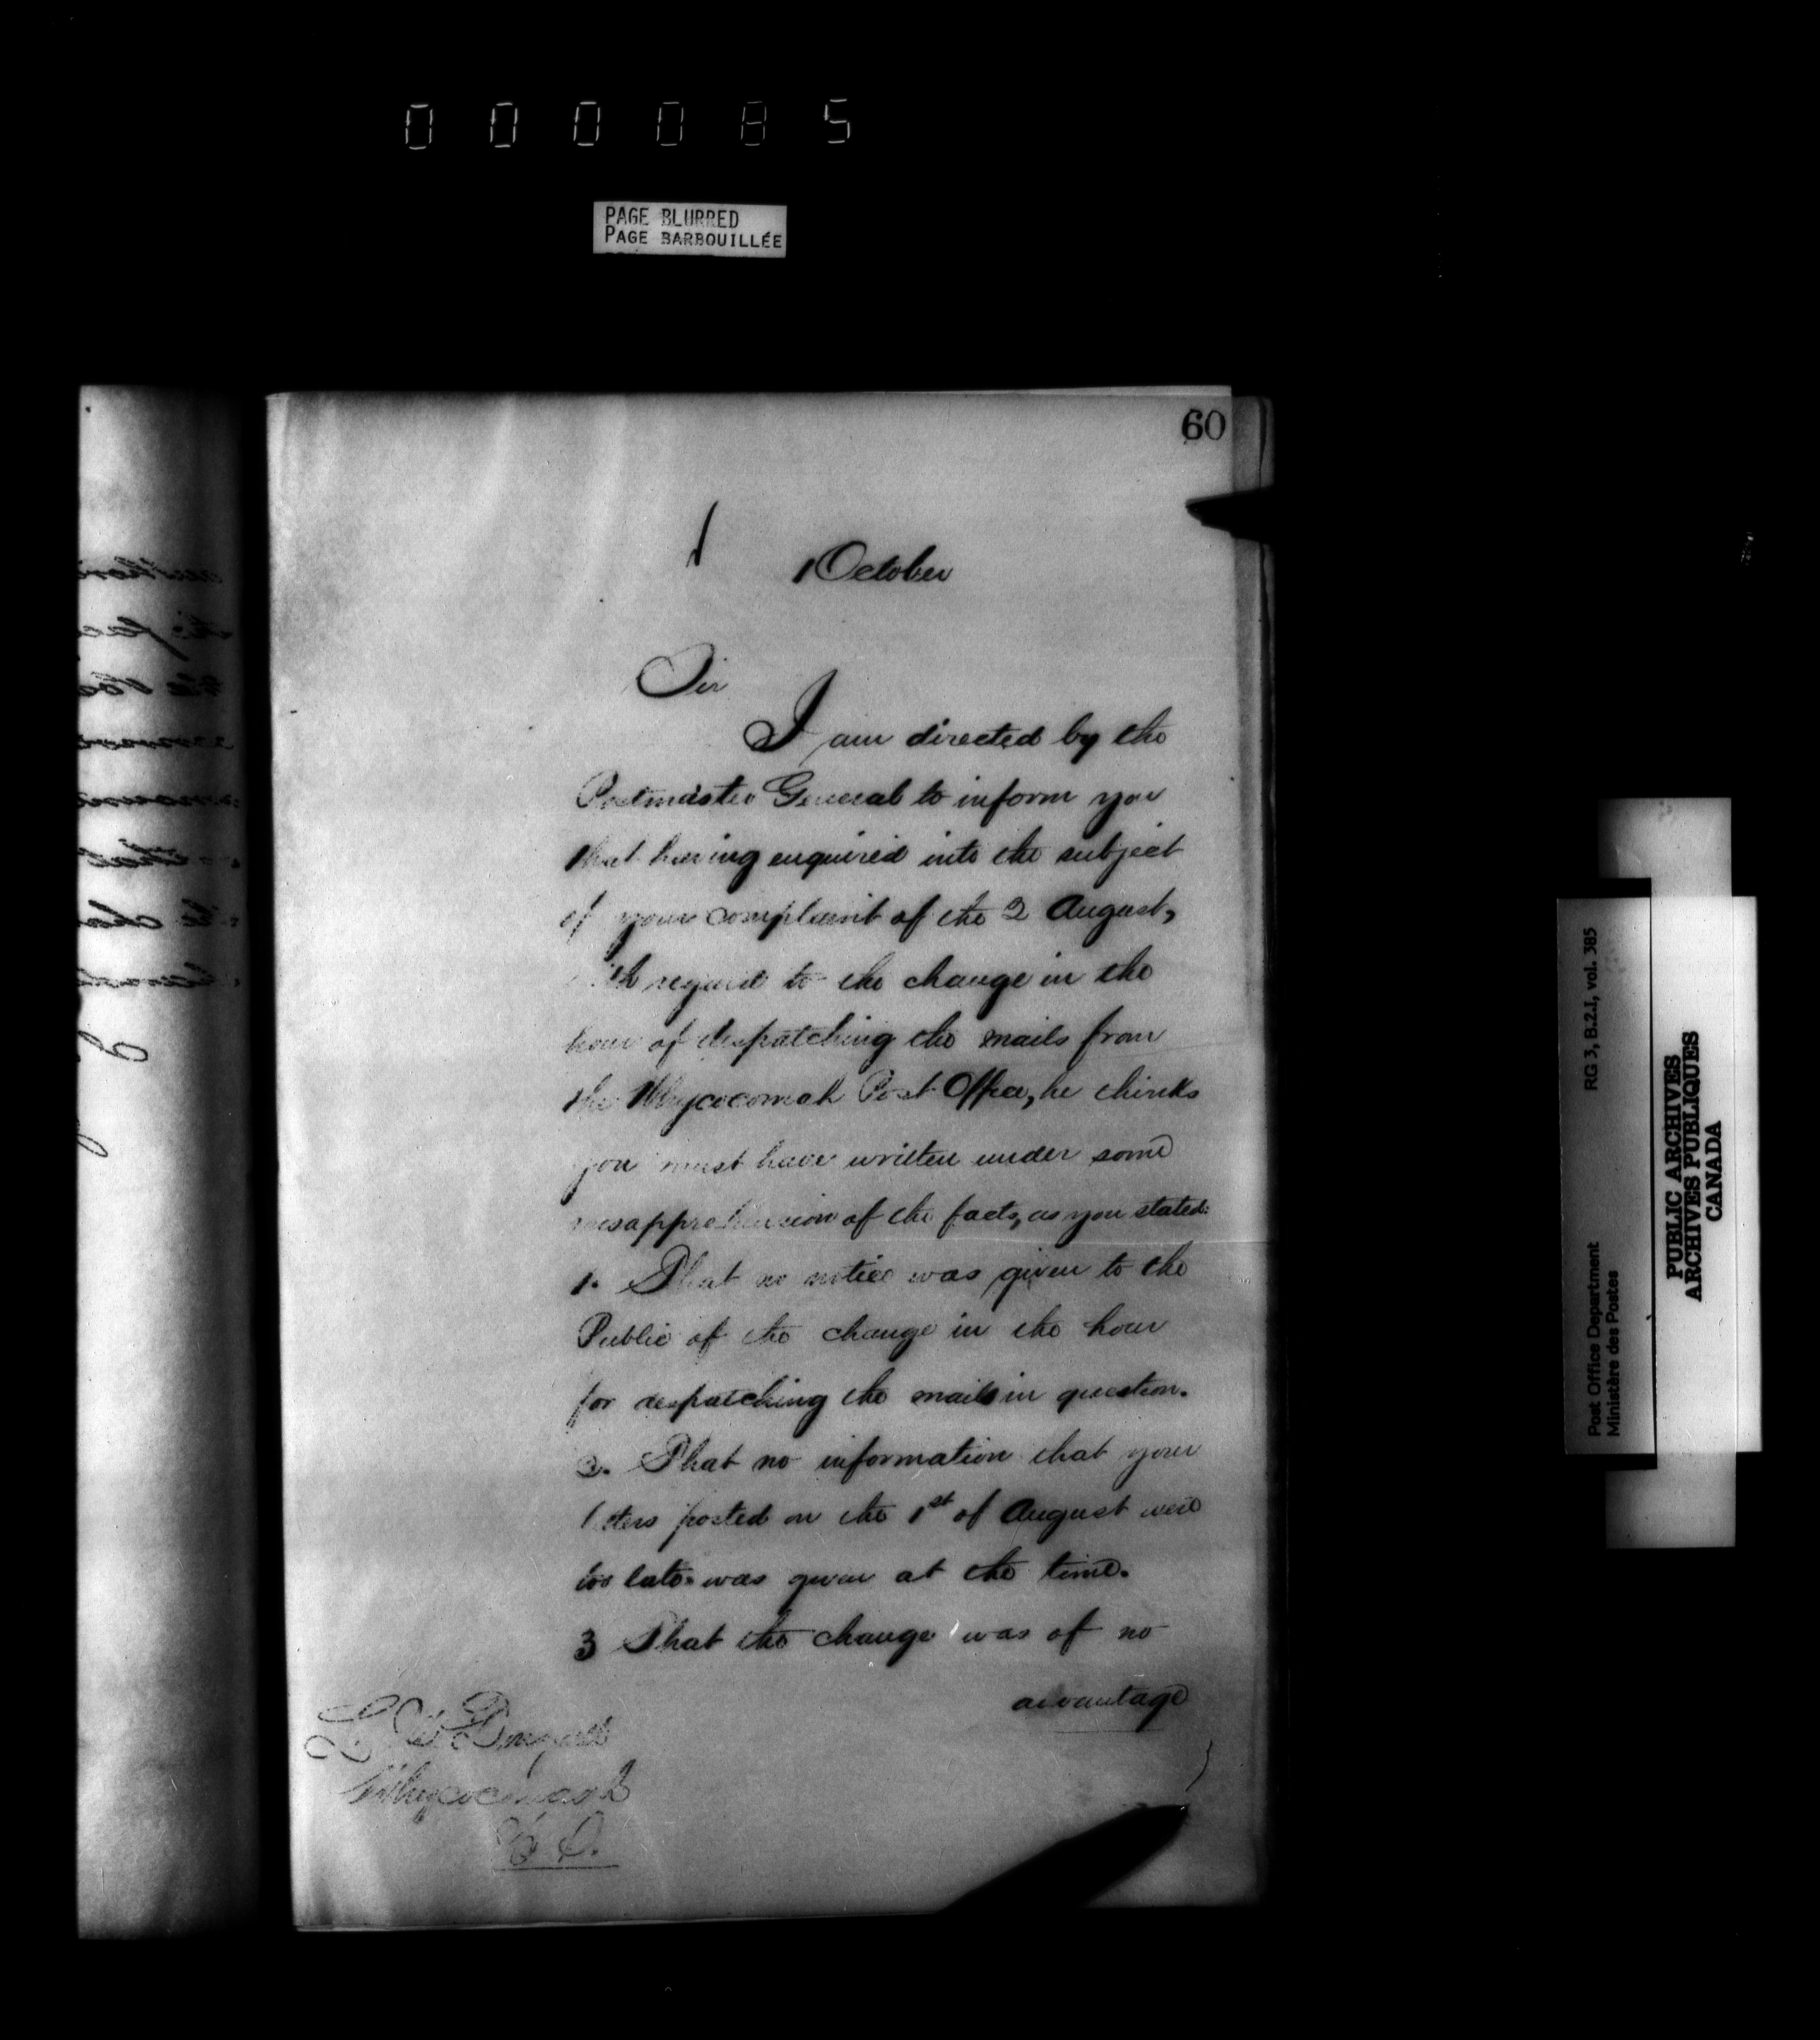 000085
PAGE BLURRED
PAGE BARBOUILLÉE
60
1 October
Sir
I am directed by the
Postmaster General to inform you
that having enquired into the subject
of your complaint of the 2 August,
with regard to the change in the
hour of despatching the mails from
the Whycocomah Post Office, he thinks
you must have written under some
misapprehension of the facts, as you stated:
1. That no notice was given to the
Public of the change in the hour
for despatching the mails in question.
2. That no information that your
letters posted on the 1st of August were
too late was given at the time.
3 That the change was of no
advantage
Whycocomah
RG 3, B.2.I, vol. 385
Post Office Department
Ministère des Postes
PUBLIC ARCHIVES
ARCHIVES PUBLIQUES
CANADA